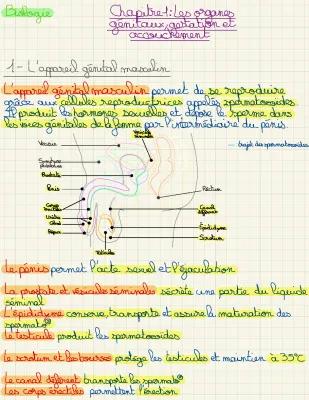 Biologie
Chapitre 1: Les organes
génitaux, gestation et
accouchement
1- L'appareil génital masculin
L'appareil génital masculin permet de se reproduire
grâce aux cellules reproductrices appelés spermatozoïdes.
Il produit les hormones sexuelles et dépose le sperme dans
les voies génitales de la femme par l'intermédiaire du pénis.
Vessie
trajet des spermatozoïdes
Prostate
Rectum
Canal
déférent
Urètre
Gland
Epididyme
Scrotum
Testicule
Le pénis permet l'acte sexuel et l'éjaculation
La prostate et vésicules séminales sécrète une partie du liquide
séminal
L'épididyme conserve, transporte et assure la maturation des
spermato
Le testicule produit les spermatozoïdes
Le scrotum et les bourses protège les testicules et maintien à 35°C
Le canal déférent transporte les spermato
Les corps érectiles permettent l'érection